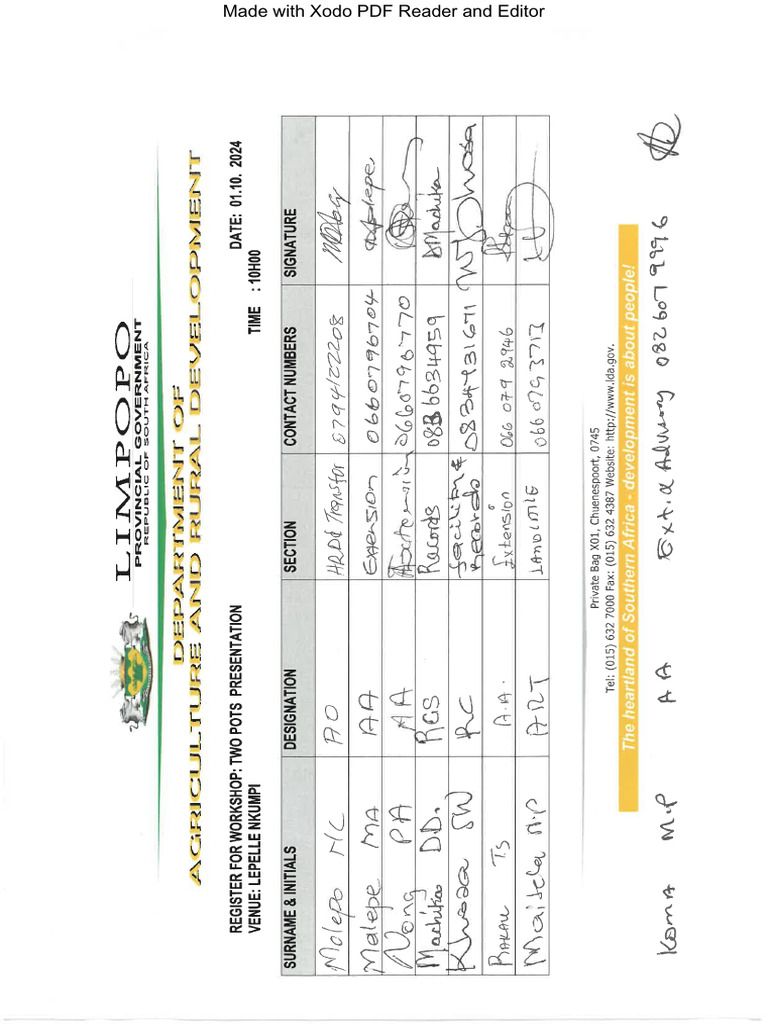 Made with Xodo PDF Reader and Editor
LIMPOPO
PROVINCIAL GOVERNMENT
REPUBLIC OF SOUTH AFRICA
DEPARTMENT OF
AGRICULTURE AND RURAL DEVELOPMENT
REGISTER FOR WORKSHOP: TWO POTS PRESENTATION DATE: 01.10. 2024
VENUE: LEPELLE NKUMPI TIME : 10H00
SURNAME & INITIALS DESIGNATION SECTION CONTACT NUMBERS SIGNATURE
Molepo MC AO HRDd Transfer 0794122208
Malepe MA AA Extension 0660796704 Malepe
Nong PA AA Extension 0660796770
Machika D.D. RGS Records 0836634959 DMachika
Khosa SW RC Facility & Records 0834931671 W.J. Khosa
RAKAU TS A.A. Extension 066 079 2946
Maitela M.P ART LANDLINE 066 079 3713
Private Bag X01, Chuenespoort, 0745
Tel: (015) 632 7000 Fax: (015) 632 4387 Website: http://www.lda.gov.
The heartland of Southern Africa - development is about people!
Koma M.P AA Ext & Advisory 082 607 9996